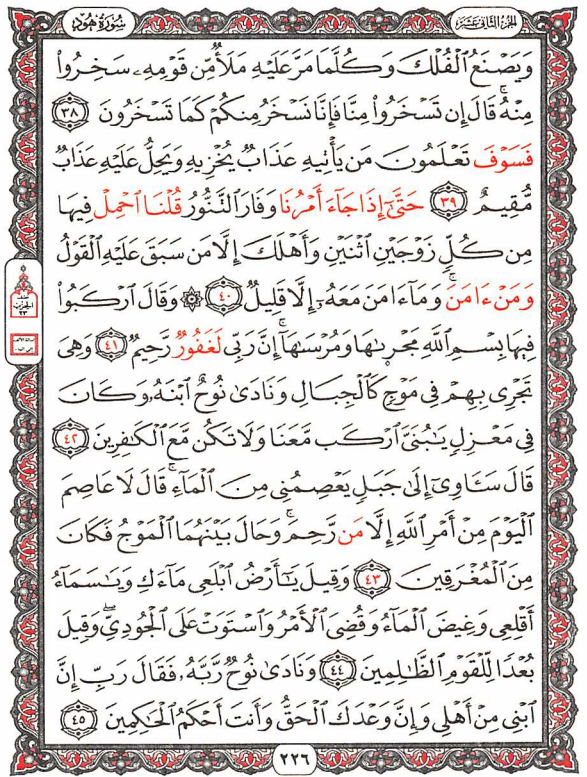 الجزء الثاني عشر
سورة هود
وَيَصْنَعُ ٱلْفُلْكَ وَكُلَّمَا مَرَّ عَلَيْهِ مَلَأٌ مِّن قَوْمِهِۦ سَخِرُوا۟
مِنْهُ ۚ قَالَ إِن تَسْخَرُوا۟ مِنَّا فَإِنَّا نَسْخَرُ مِنكُمْ كَمَا تَسْخَرُونَ ٣٨
فَسَوْفَ تَعْلَمُونَ مَن يَأْتِيهِ عَذَابٌ يُخْزِيهِ وَيَحِلُّ عَلَيْهِ عَذَابٌ
مُّقِيمٌ ٣٩ حَتَّىٰٓ إِذَا جَآءَ أَمْرُنَا وَفَارَ ٱلتَّنُّورُ قُلْنَا ٱحْمِلْ فِيهَا
مِن كُلٍّ زَوْجَيْنِ ٱثْنَيْنِ وَأَهْلَكَ إِلَّا مَن سَبَقَ عَلَيْهِ ٱلْقَوْلُ
وَمَنْ ءَامَنَ ۚ وَمَآ ءَامَنَ مَعَهُۥٓ إِلَّا قَلِيلٌ ٤٠ ۞ وَقَالَ ٱرْكَبُوا۟
فِيهَا بِسْمِ ٱللَّهِ مَجْر۪ىٰهَا وَمُرْسَىٰهَآ ۚ إِنَّ رَبِّى لَغَفُورٌ رَّحِيمٌ ٤١ وَهِىَ
تَجْرِى بِهِمْ فِى مَوْجٍ كَٱلْجِبَالِ وَنَادَىٰ نُوحٌ ٱبْنَهُۥ وَكَانَ
فِى مَعْزِلٍ يَٰبُنَىَّ ٱرْكَب مَّعَنَا وَلَا تَكُن مَّعَ ٱلْكَٰفِرِينَ ٤٢
قَالَ سَـَٔاوِىٓ إِلَىٰ جَبَلٍ يَعْصِمُنِى مِنَ ٱلْمَآءِ ۚ قَالَ لَا عَاصِمَ
ٱلْيَوْمَ مِنْ أَمْرِ ٱللَّهِ إِلَّا مَن رَّحِمَ ۚ وَحَالَ بَيْنَهُمَا ٱلْمَوْجُ فَكَانَ
مِنَ ٱلْمُغْرَقِينَ ٤٣ وَقِيلَ يَٰٓأَرْضُ ٱبْلَعِى مَآءَكِ وَيَٰسَمَآءُ
أَقْلِعِى وَغِيضَ ٱلْمَآءُ وَقُضِىَ ٱلْأَمْرُ وَٱسْتَوَتْ عَلَى ٱلْجُودِىِّ ۖ وَقِيلَ
بُعْدًا لِّلْقَوْمِ ٱلظَّٰلِمِينَ ٤٤ وَنَادَىٰ نُوحٌ رَّبَّهُۥ فَقَالَ رَبِّ إِنَّ
ٱبْنِى مِنْ أَهْلِى وَإِنَّ وَعْدَكَ ٱلْحَقُّ وَأَنتَ أَحْكَمُ ٱلْحَٰكِمِينَ ٤٥
٢٢٦
نصف
الحزب
٢٣